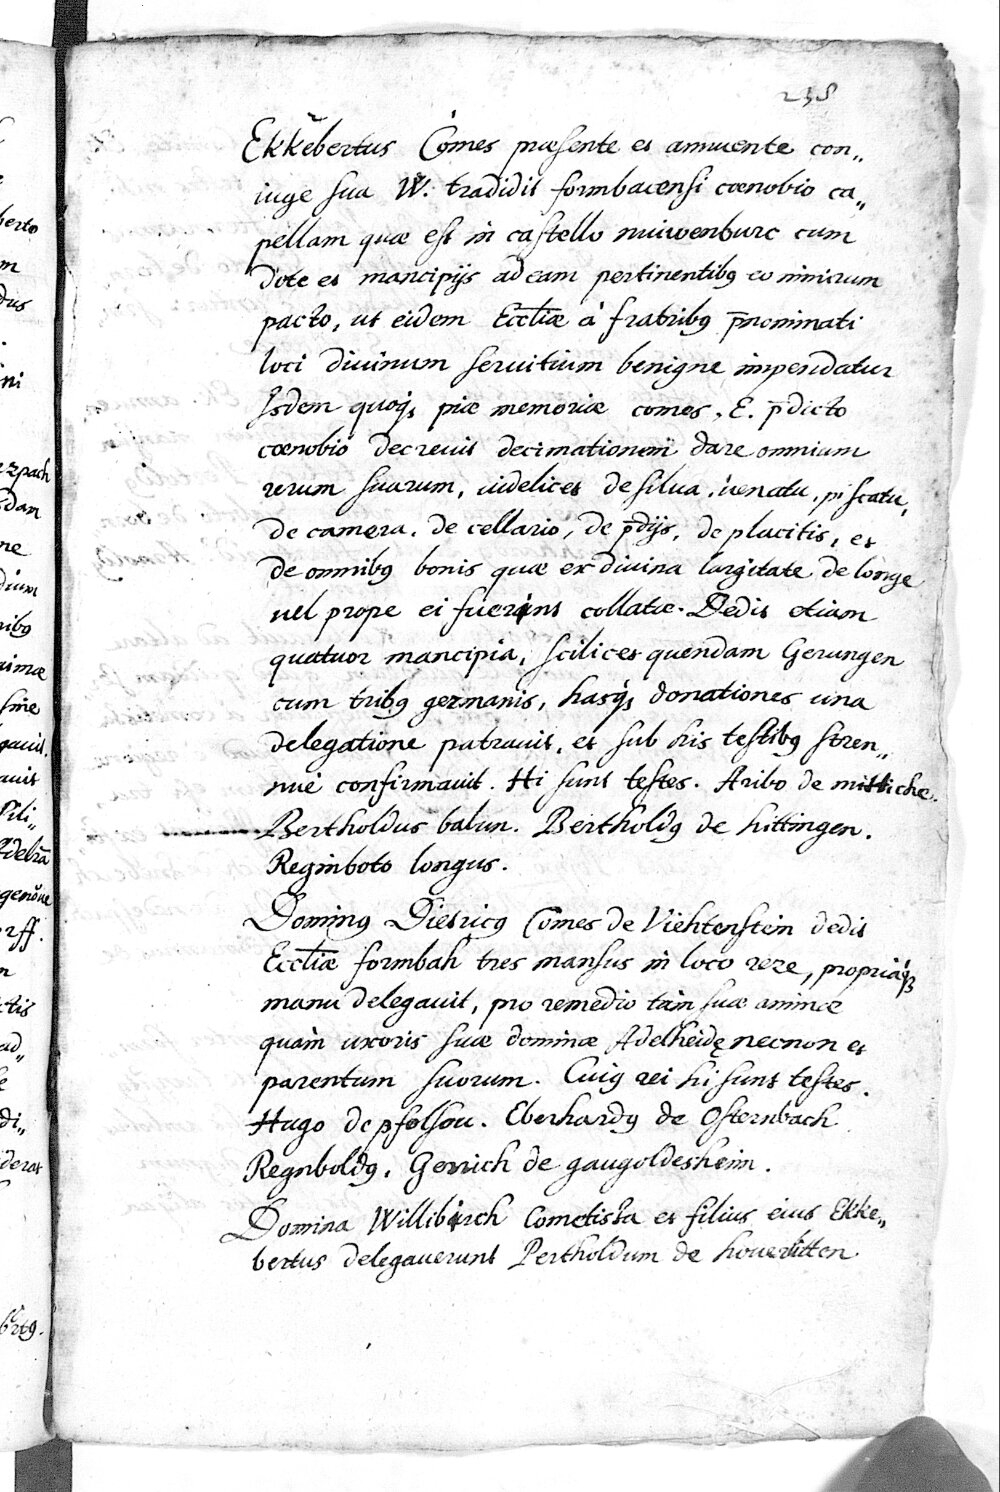 238
Ekkebertus Comes præsente et annuente con„
iuge sua W. tradidit formbacensi cœnobio ca„
pellam quæ est in castello niuwenburc cum
dote et mancipijs ad eam pertinentibꝰ eo nimirum
pacto, ut eidem Eccl̅iæ à fratribꝰ p̅nominati
loci diuinum seruitium benigne impendatur
Isdem quoqꝫ piæ memoriæ comes, E. p̅dicto
cœnobio decreuit decimationem dare omnium
rerum suarum, uidelicet de silua, uenatu, piscatu,
de camera, de cellario, de p̅dijs, de placitis, et
de omnibꝰ bonis quæ ex diuina largitate de longe
uel prope ei fuerint collatæ. Dedit etiam
quatuor mancipia, scilicet quendam Gerungen
cum tribꝰ germanis, hasqꝫ donationes una
delegatione patrauit, et sub his testibꝰ stren„
nuè confirmauit. Hi sunt testes. Aribo de mittiche.
Bertholdus balun. Bertholdꝰ de hittingen.
Reginboto longus.
Dominꝰ Dietricꝰ Comes de Viehtenstein dedit
Eccl̅iæ formbah tres mansus in loco reze, propriáqꝫ
manu delegauit, pro remedio tàm suæ animæ
quàm uxoris suæ dominæ Adelheidę necnon et
parentum suorum. Cuiꝰ rei hi sunt testes.
Hugo de pfolsou. Eberhardꝰ de Osternbach
Regnboldꝰ. Gerrich de gaugoldesheim.
Domina Willibirch Cometissa et filius eius Ekke„
bertus delegauerunt Pertholdum de houerlitten